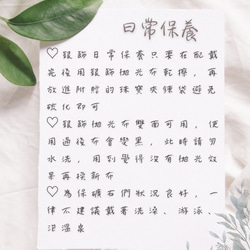 日常保養
♡銀飾日常保養只要在配戴
完後用銀飾拋光布乾擦，再
放進附贈的珠寶夾鏈袋避免
硫化即可
♡銀飾拋光布雙面可用，使
用過後布會變黑，此時請勿
水洗，用到覺得沒有拋光效
果再換新布
♡為保礦石們狀況良好，一
律不建議戴著洗澡、游泳、
泡溫泉